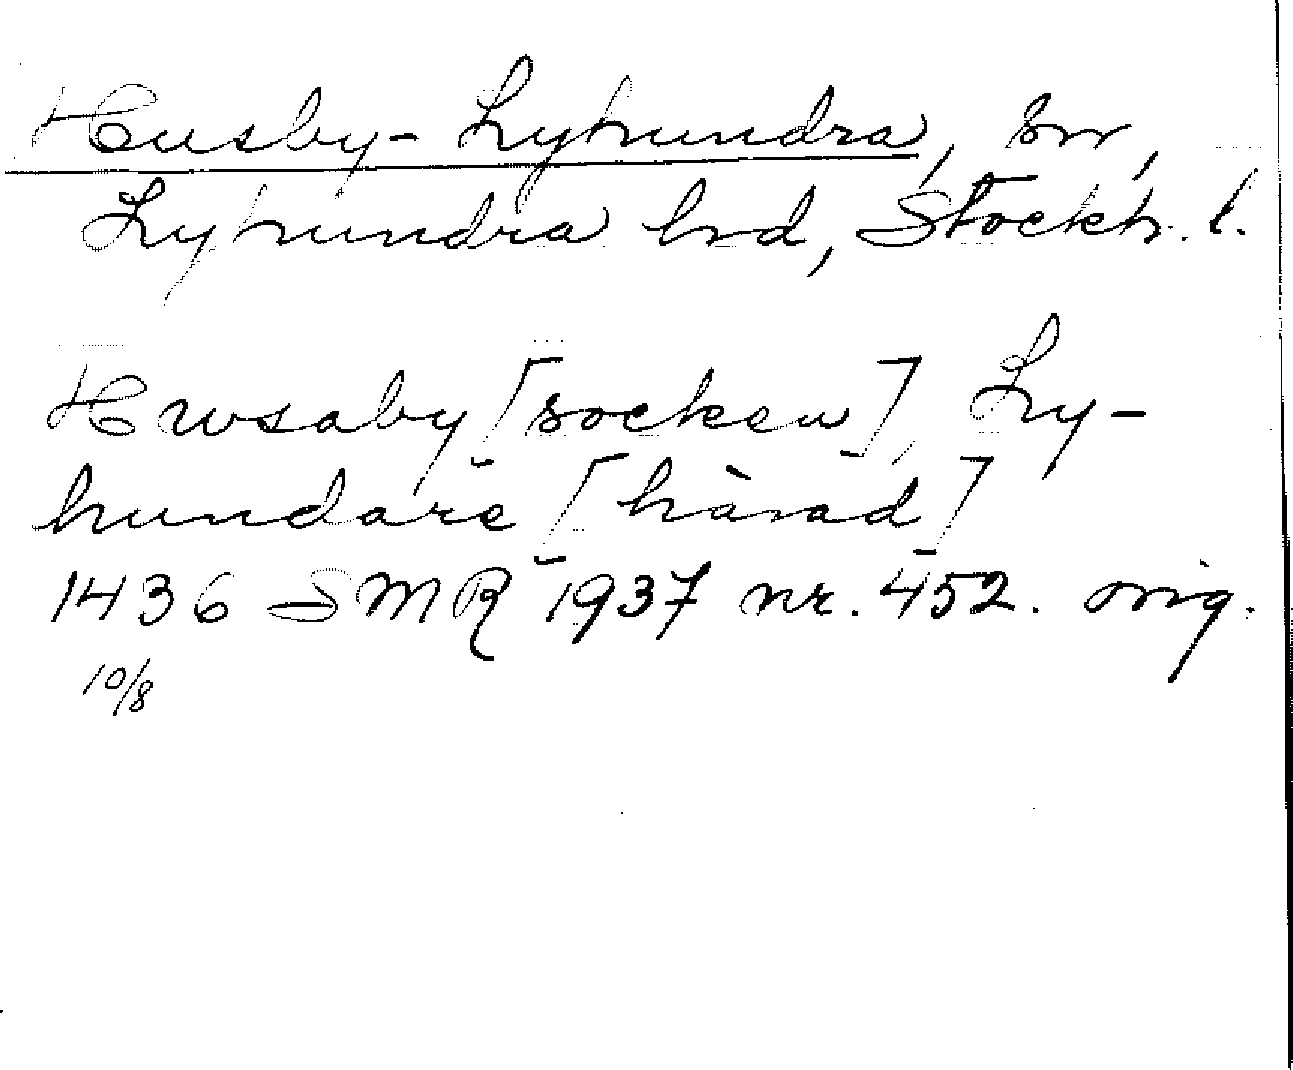 Husby-Lyhundra, sn,
Lyhundra hrd, Stockh. l.
Hwsaby [socken], Ly-
hundare [härad]
1436 SMR 1937 nr. 452. orig.
10/8